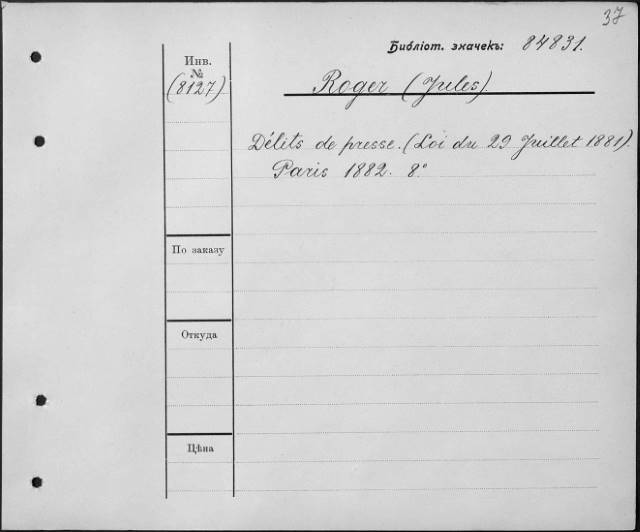 37
Библіот. значекъ: 84831.
Инв.
№
(8127)
Roger (Jules).
Délits de presse. (Loi du 29 Juillet 1881).
Paris 1882. 8°
По заказу
Откуда
Цѣна